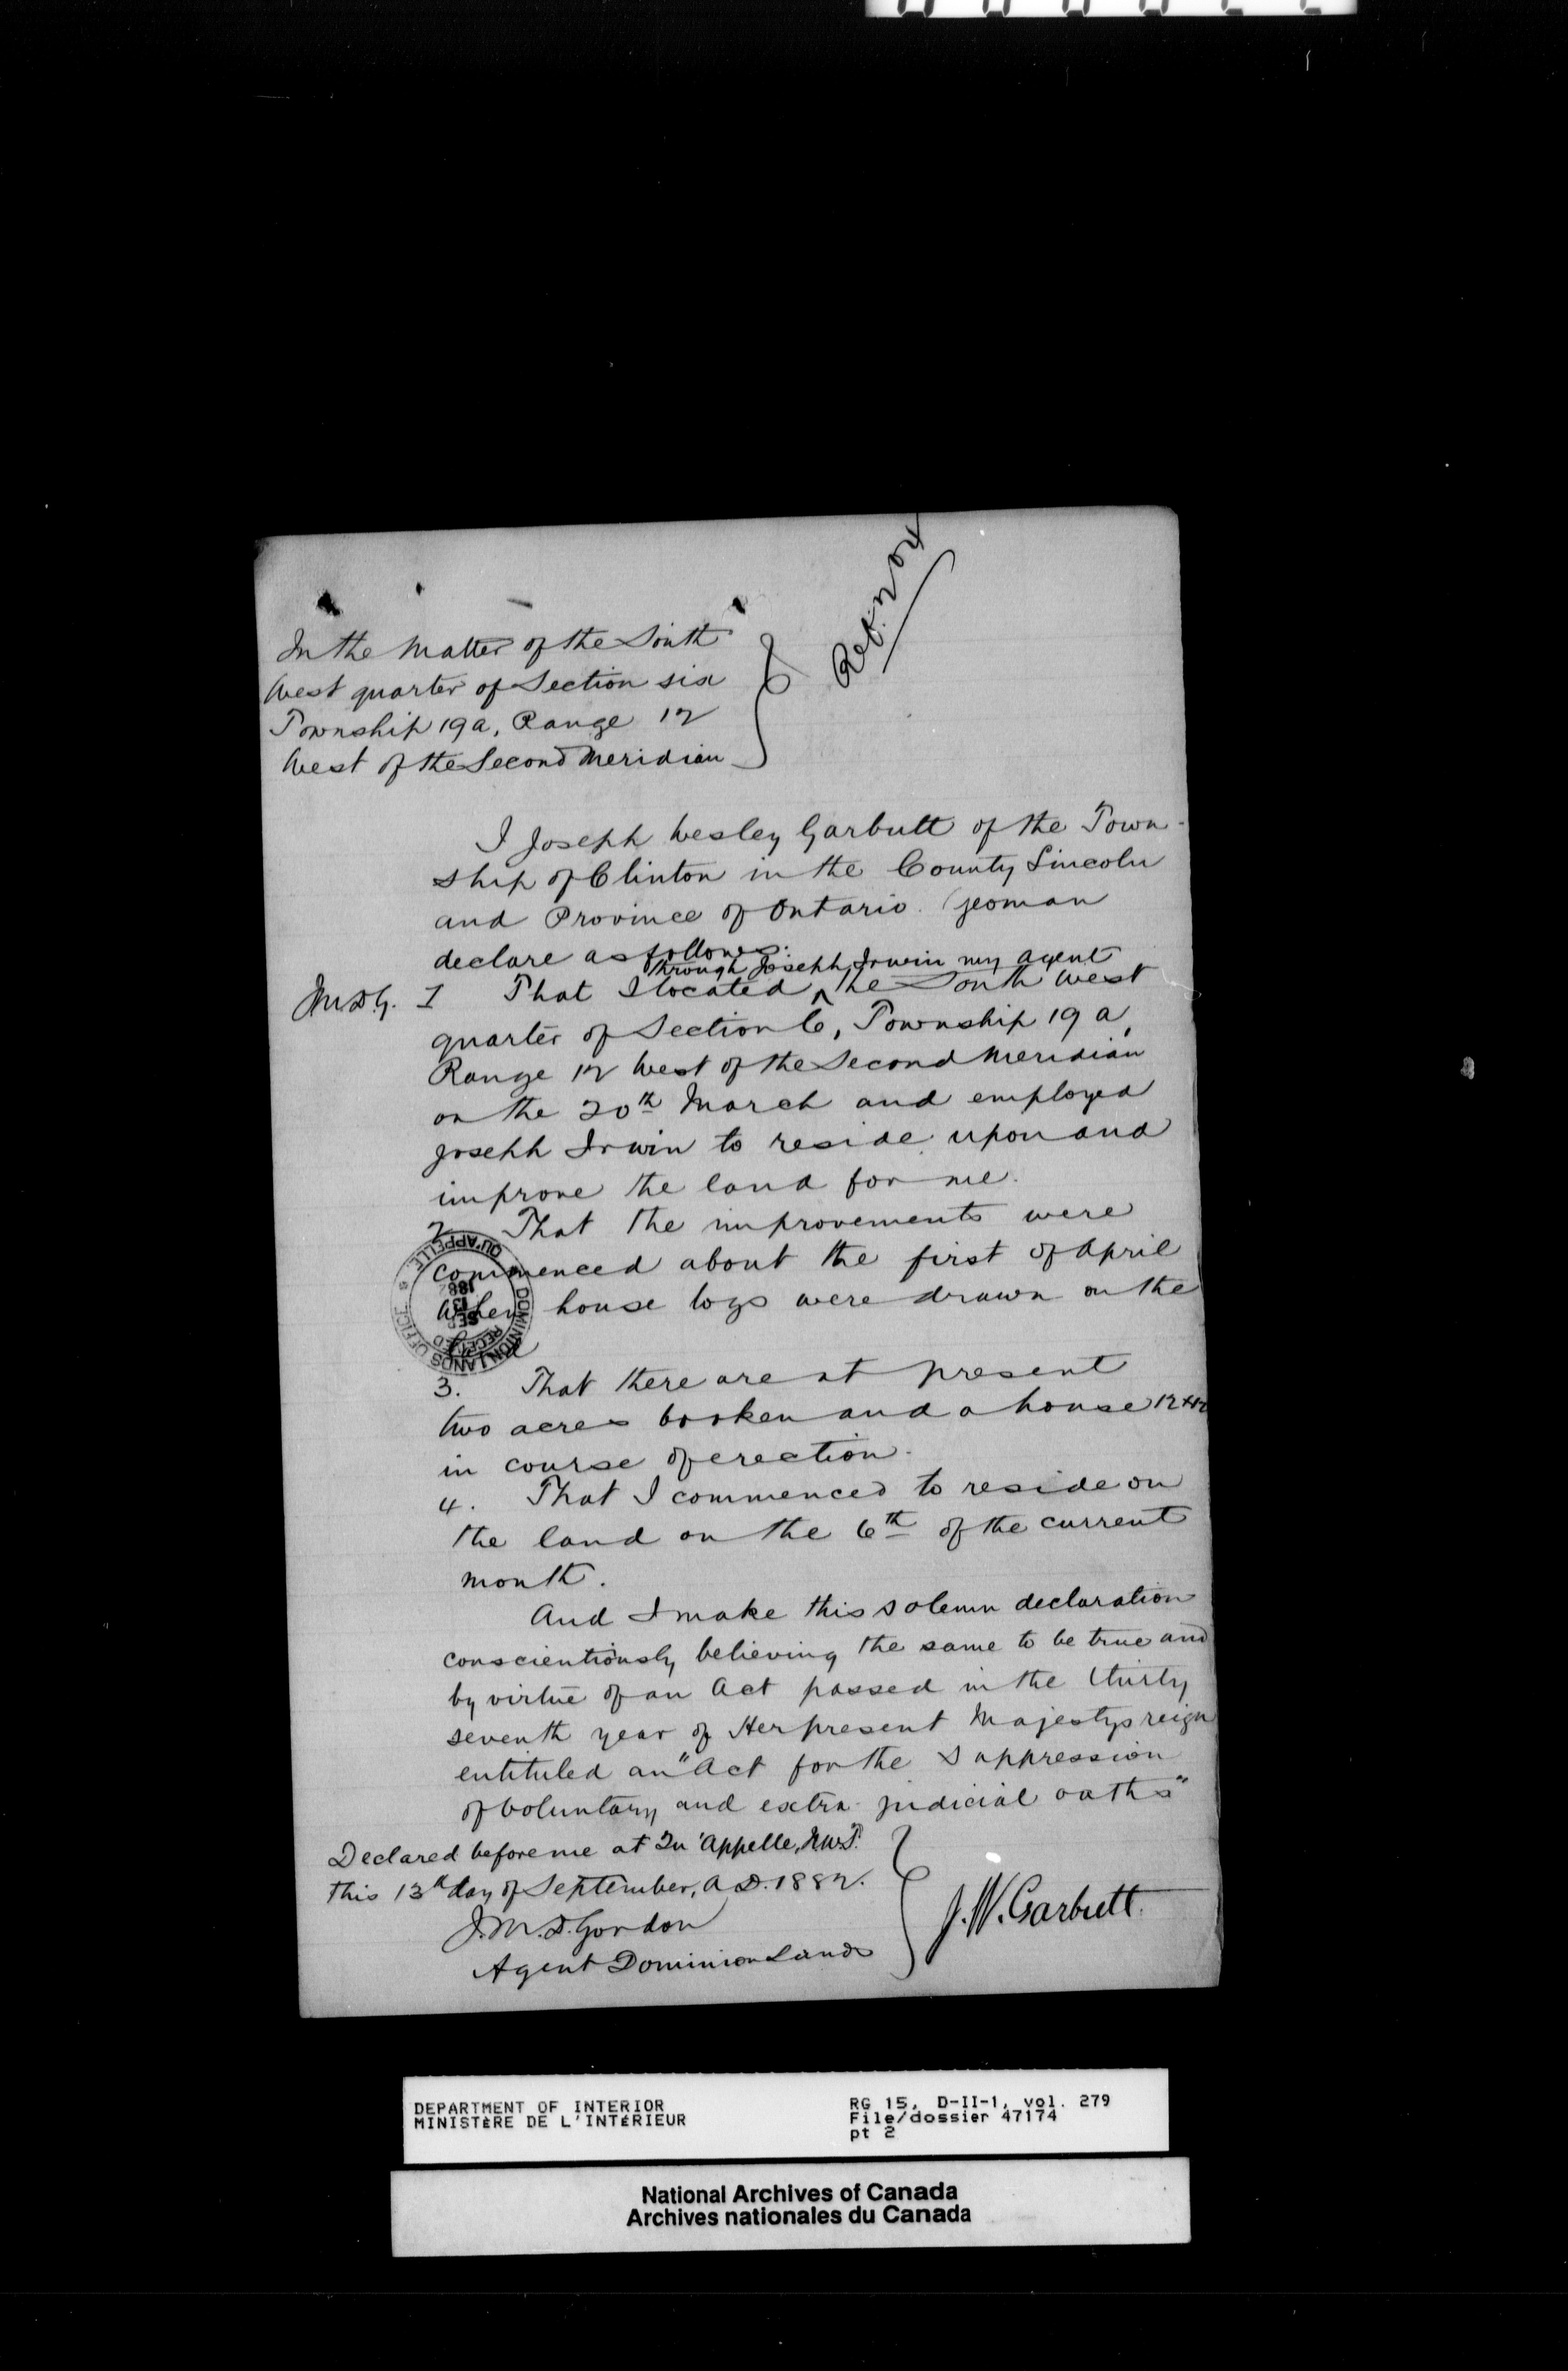 Ref. 2 or
In the Matter of the South
West quarter of Section six
Township 19a, Range 12
West of the Second Meridian
I Joseph Wesley Garbutt of the Town-
ship of Clinton in the County Lincoln
and Province of Ontario. Yeoman
declare as follows:
through Joseph Irwin my agent
J.M.D.G. 1 That I located ^ the South West
quarter of Section 6, Township 19 a,
Range 12 West of the Second Meridian
on the 20th March and employed
Joseph Irwin to reside upon and
improve the land for me.
2 That the improvements were
commenced about the first of April
when house logs were drawn on the
land
DOMINION LANDS OFFICE
QU'APPELLE
RECEIVED
SEP
13
1882
3. That there are at present
two acres broken and a house 12x12
in course of erection.
4. That I commenced to reside on
the land on the 6th of the current
month.
And I make this solemn declaration
conscientiously believing the same to be true and
by virtue of an Act passed in the thirty
seventh year of Her present Majestys reign
entituled an "Act for the Suppression
of Voluntary and extra-judicial oaths"
Declared before me at Qu'Appelle, N.W.T.
this 13th day of September, A.D. 1882.
J.M.D. Gordon
Agent Dominion Lands
J.W. Garbutt.
DEPARTMENT OF INTERIOR
MINISTÈRE DE L'INTÉRIEUR
RG 15, D-II-1, vol. 279
File/dossier 47174
pt 2
National Archives of Canada
Archives nationales du Canada